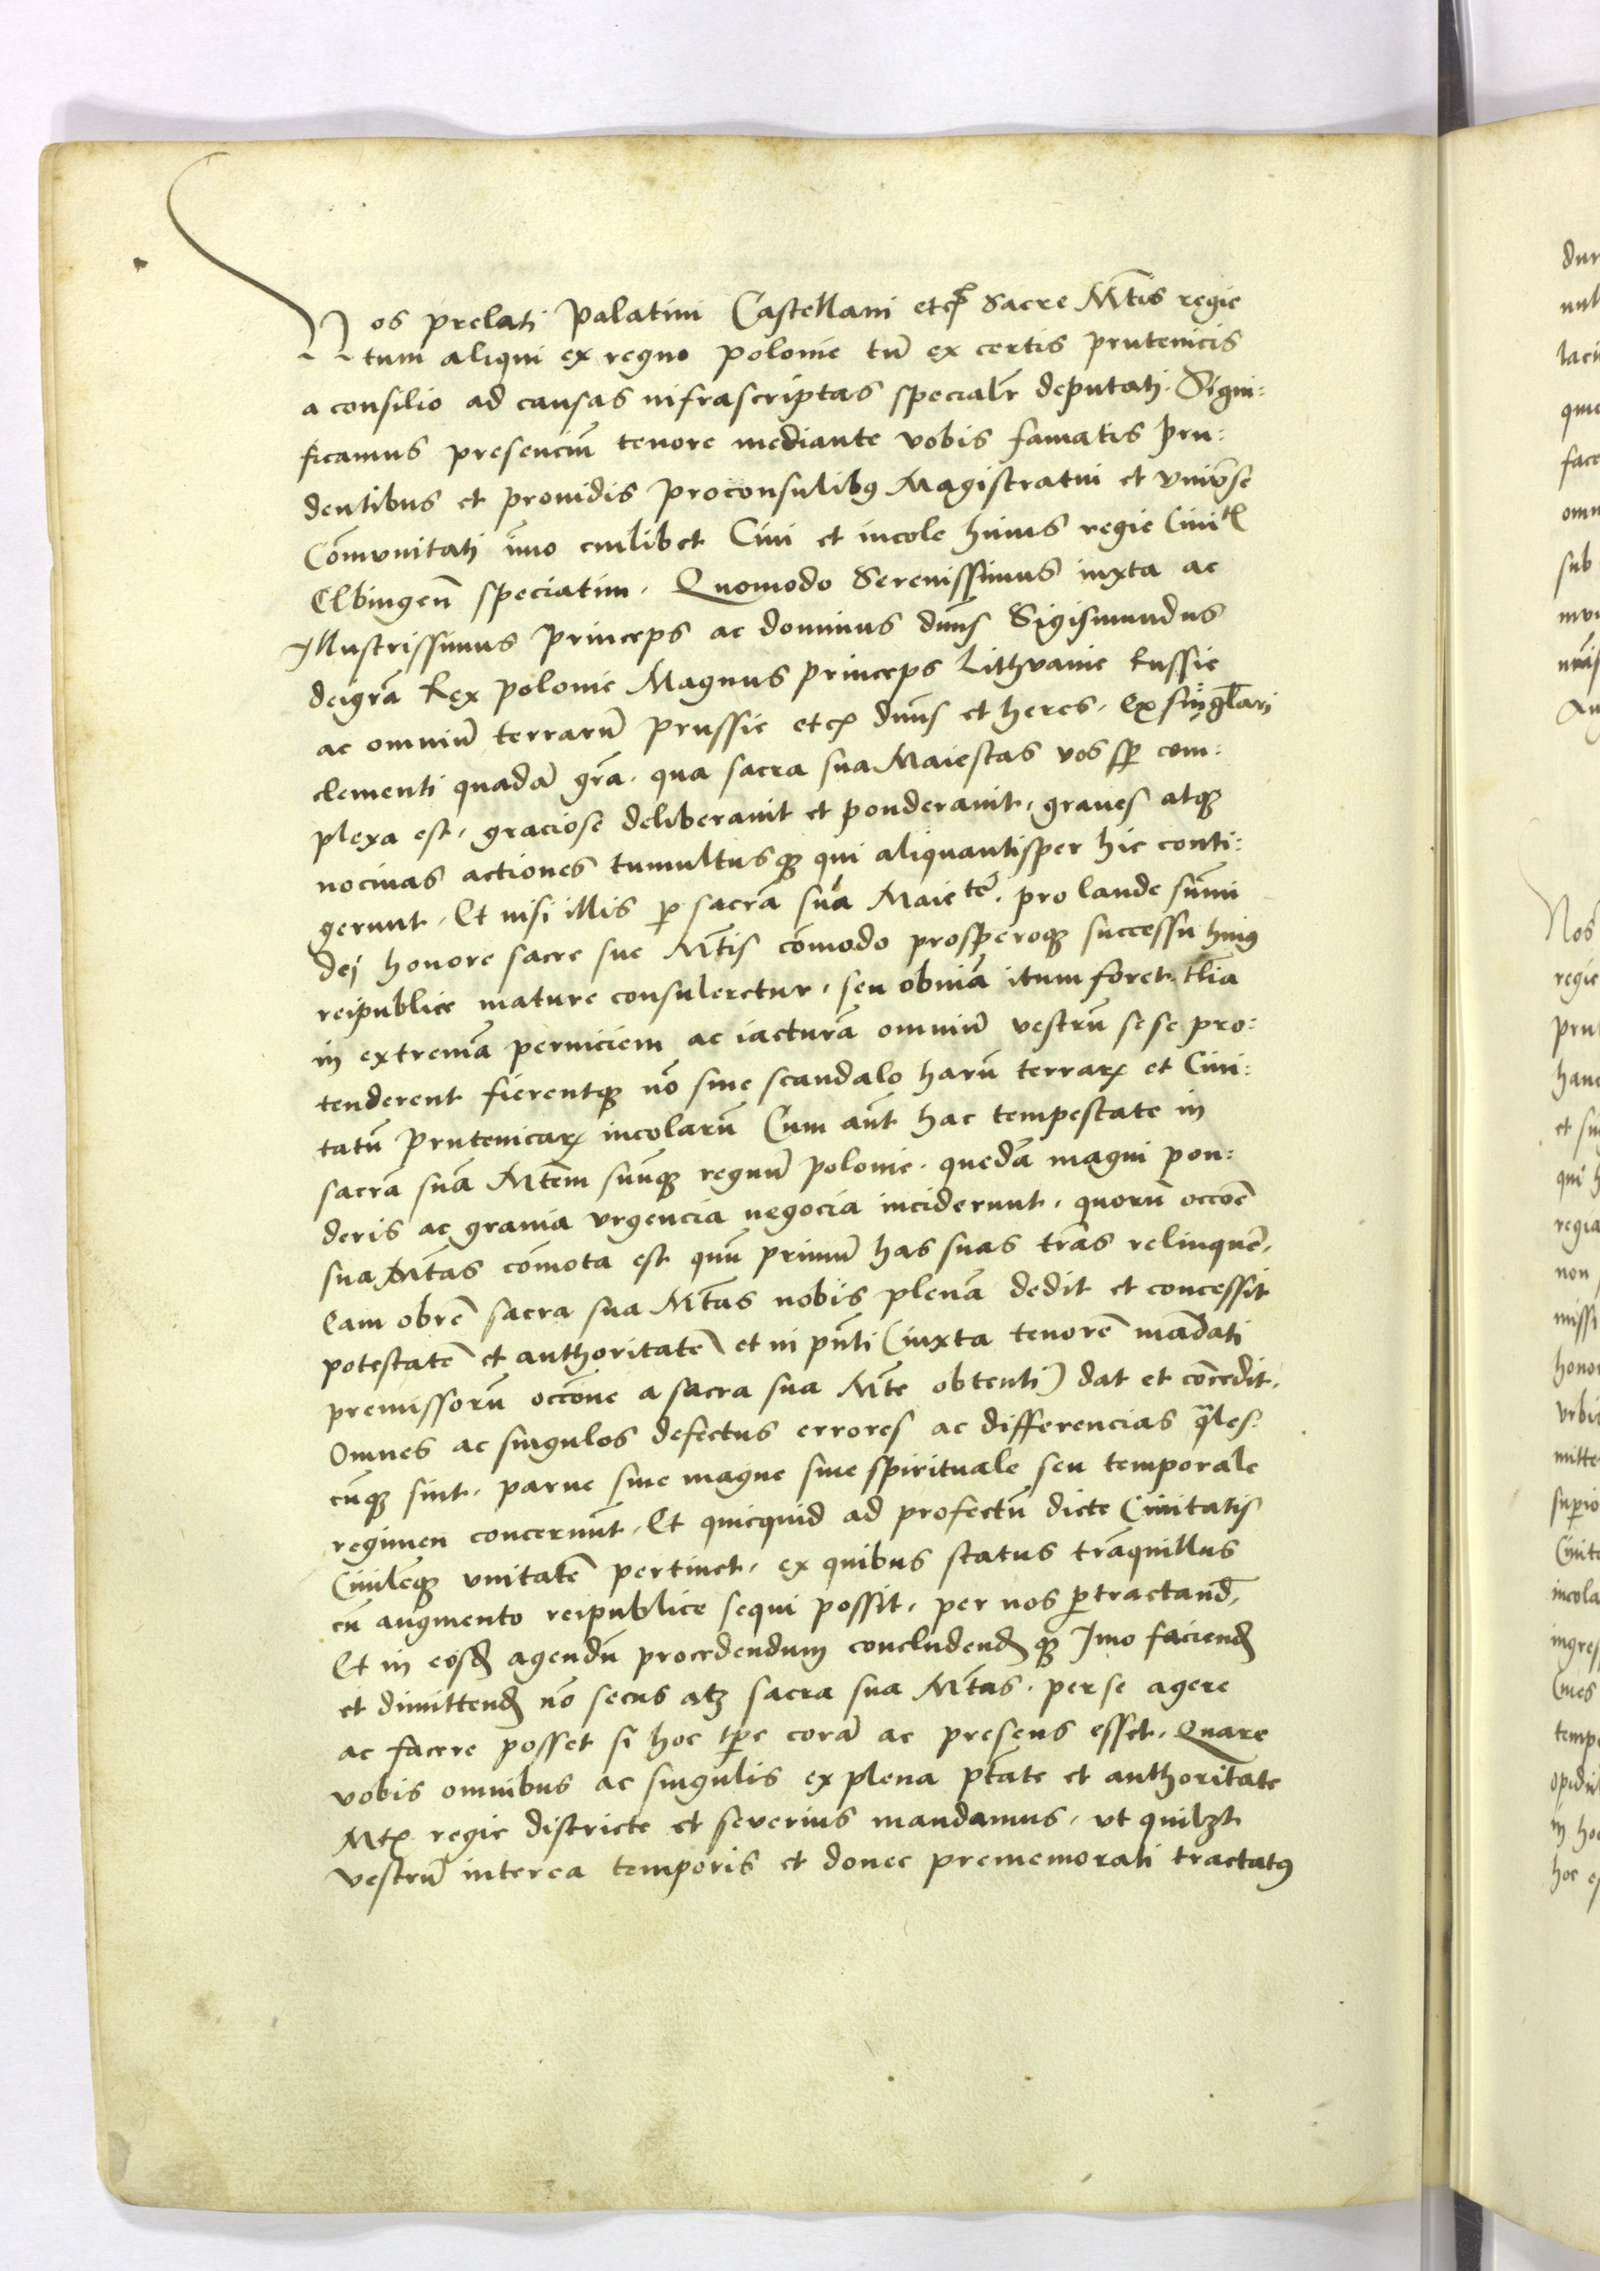 Nos prelati palatini Castellani etcꝭ Sacre Mtis regie
tum aliqui ex regno polonie tu̅ ex certis prutenicis
a consilio ad causas infrascriptas specialr̅ deputati. Signi:
ficamus presenciu̅ tenore mediante vobis famatis pru:
dentibus et prouidis proconsulibꝯ Magistratui et vniu̅se
Co̅munitati imo cuilibet Ciui et incole huius regie Ciuitꝭ
Elbingen̅ speciatim. Quomodo Serenissimus iuxta ac
Illustrissimus princeps ac dominus dn̅s Sigismundus
deigr̅a Rex polonie Magnus princeps Lithvanie Russie
ac omniu̅ terraru̅ prussie etcꝭ dn̅s et heres. Ex singl̅ari
clementi quada̅ gr̅a. qua sacra sua Maiestas vos sꝑ com:
plexa est. graciose deliberauit et ponderauit. graues atqꝫ
nociuas actiones tumultusqꝫ qui aliquantisper hic conti:
gerunt. Et nisi illis ꝑ sacra̅ sua̅ Maiete̅. pro laude su̅mi
dej honore sacre sue Mtis co̅modo prosperoqꝫ successu huiꝯ
reipublice mature consuleretur. seu obuia̅ itum foret. tl̅ia
in extrema̅ perniciem ac iactura̅ omniu̅ vestru̅ sese pro:
tenderent fierentqꝫ no̅ sine scandalo haru̅ terrarꝝ et Ciui:
tatu̅ prutenicarꝝ incolaru̅ Cum aut̅ hac tempestate in
sacra̅ sua̅ Mtem suu̅qꝫ regnu̅ polonie. queda̅ magni pon:
deris ac grauia vrgencia negocia inciderunt. quoru̅ occo̅e
sua Mtas co̅mota est qua̅ primu̅ has suas tr̅as relinque̅.
Eam obre̅ sacra sua Mtas nobis plena̅ dedit et concessit
potestate̅ et authoritate̅ et in pn̅ti (iuxta tenore̅ ma̅dati
premissoru̅ occo̅ne a sacra sua Mte obtenti) dat et co̅cedit.
Omnes ac singulos defectus errores ac differencias q̅les:
cu̅qꝫ sint. parue siue magne siue spirituale seu temporale
regimen concernu̅t. Et quicquid ad profectu̅ dicte Ciuitatis
Ciuile̅qꝫ vnitate̅ pertinet. ex quibus status tra̅quillus
cu̅ augmento reipublice sequi possit. per nos ꝑtractand̅.
Et in eosd̅ agendu̅ procedendum concludend̅qꝫ Imo faciend̅
et dimittend̅ no̅ secus atqꝫ sacra sua Mtas. per se agere
ac facere posset si hoc tp̅e cora̅ ac presens esset. Quare
vobis omnibus ac singulis ex plena pt̅ate et authoritate
Mtꝭ regie districte et seuerius mandamus. vt quilꝫt
vestru̅ interea temporis et donec prememorati tractatꝯ
dur
nul
faci
que
face
omn
sub
mun
Nos
regie
prut
hanc
et su
qui h
regia
non
missi
hono
vrbis
mitte
incola
ingres
Ciues
tempo
opidu
in ho
hoc e